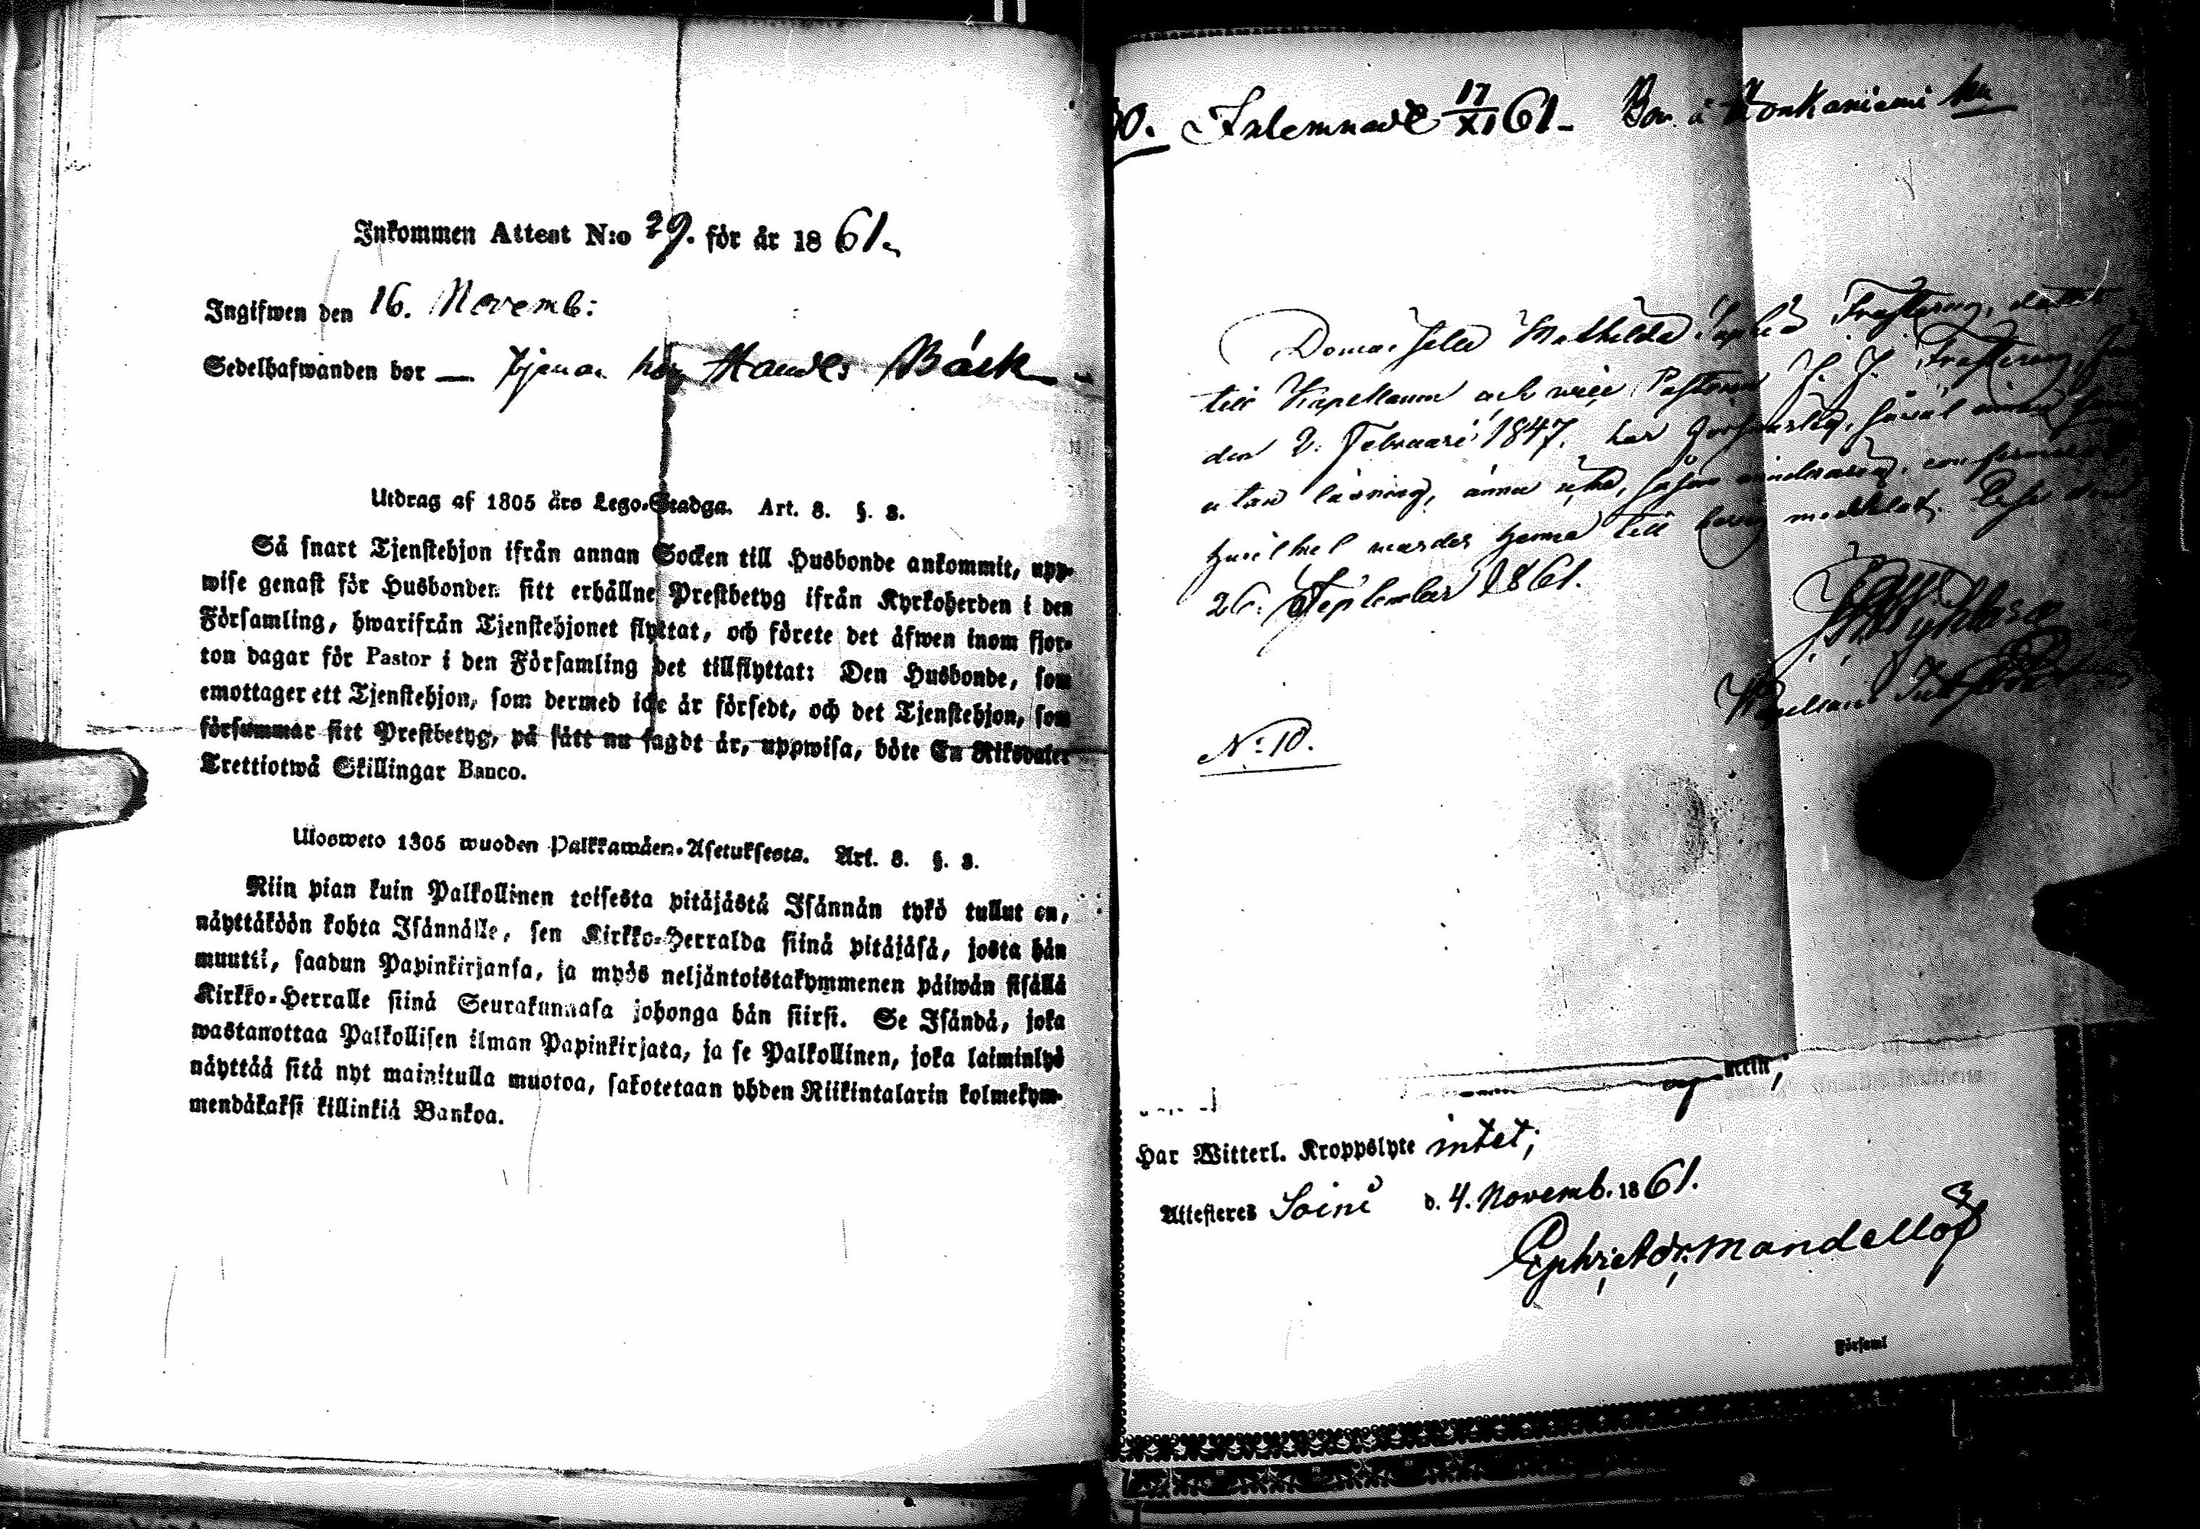 Inkommen Attest N:o 29. för år 1861.
Ingifwen den 16. Novemb:
Sedelhafwanden bor — Tjenar hos Handl: Bäck
Utdrag af 1805 års Lego-Stadga. Art. 8. §. 3.
Så snart Tjenstehjon ifrån annan Socken till Husbonde ankommit, upp-
wise genast för Husbonden sitt erhållne Prestbetyg ifrån Kyrkoherden i den
Församling, hwarifrån Tjenstehjonet flyttat, och förete det äfwen inom fjor-
ton dagar för Pastor i den Församling det tillflyttat: Den Husbonde, som
emottager ett Tjenstehjon, som dermed icke är försedt, och det Tjenstehjon, som
försummar sitt Prestbetyg, på sätt nu sagdt är, uppwisa, böte En Riksdaler
Trettiotwå Skillingar Banco.
Ulosweto 1805 wuoden Palkkawäen-Asetuksesta. Art. 8. §. 3.
Niin pian kuin Palkollinen toisesta pitäjästä Isännän tykö tullut on,
näyttäköön kohta Isännälle, sen Kirkko-Herralda siinä pitäjäsä, josta hän
muutti, saadun Papinkirjansa, ja myös neljäntoistakymmenen päiwän sisällä
Kirkko-Herralle siinä Seurakunnasa johonga hän siirsi. Se Isändä, joka
wastanottaa Palkollisen ilman Papinkirjata, ja se Palkollinen, joka laiminlyö
näyttää sitä nyt mainitulla muotoa, sakotetaan yhden Riikintalarin kolmekym-
mendäkaksi killinkiä Bankoa.
0. Inlemnadt 17/XI 61. Bor å Honkaniemi
Mathilda Sophia
till Kapellanen och vice Pastoren J. J.
den 2. Februari 1847, har
utan läsning, ännu icke, såsom
hvilket varder henne till bevis meddelat.
26. September 1861.
N:o 10.
Har Witterl. Kroppslyte intet;
Attesteres Soini d. 4. Novemb. 1861.
Ephr: Adr: Mandellöf
Församl